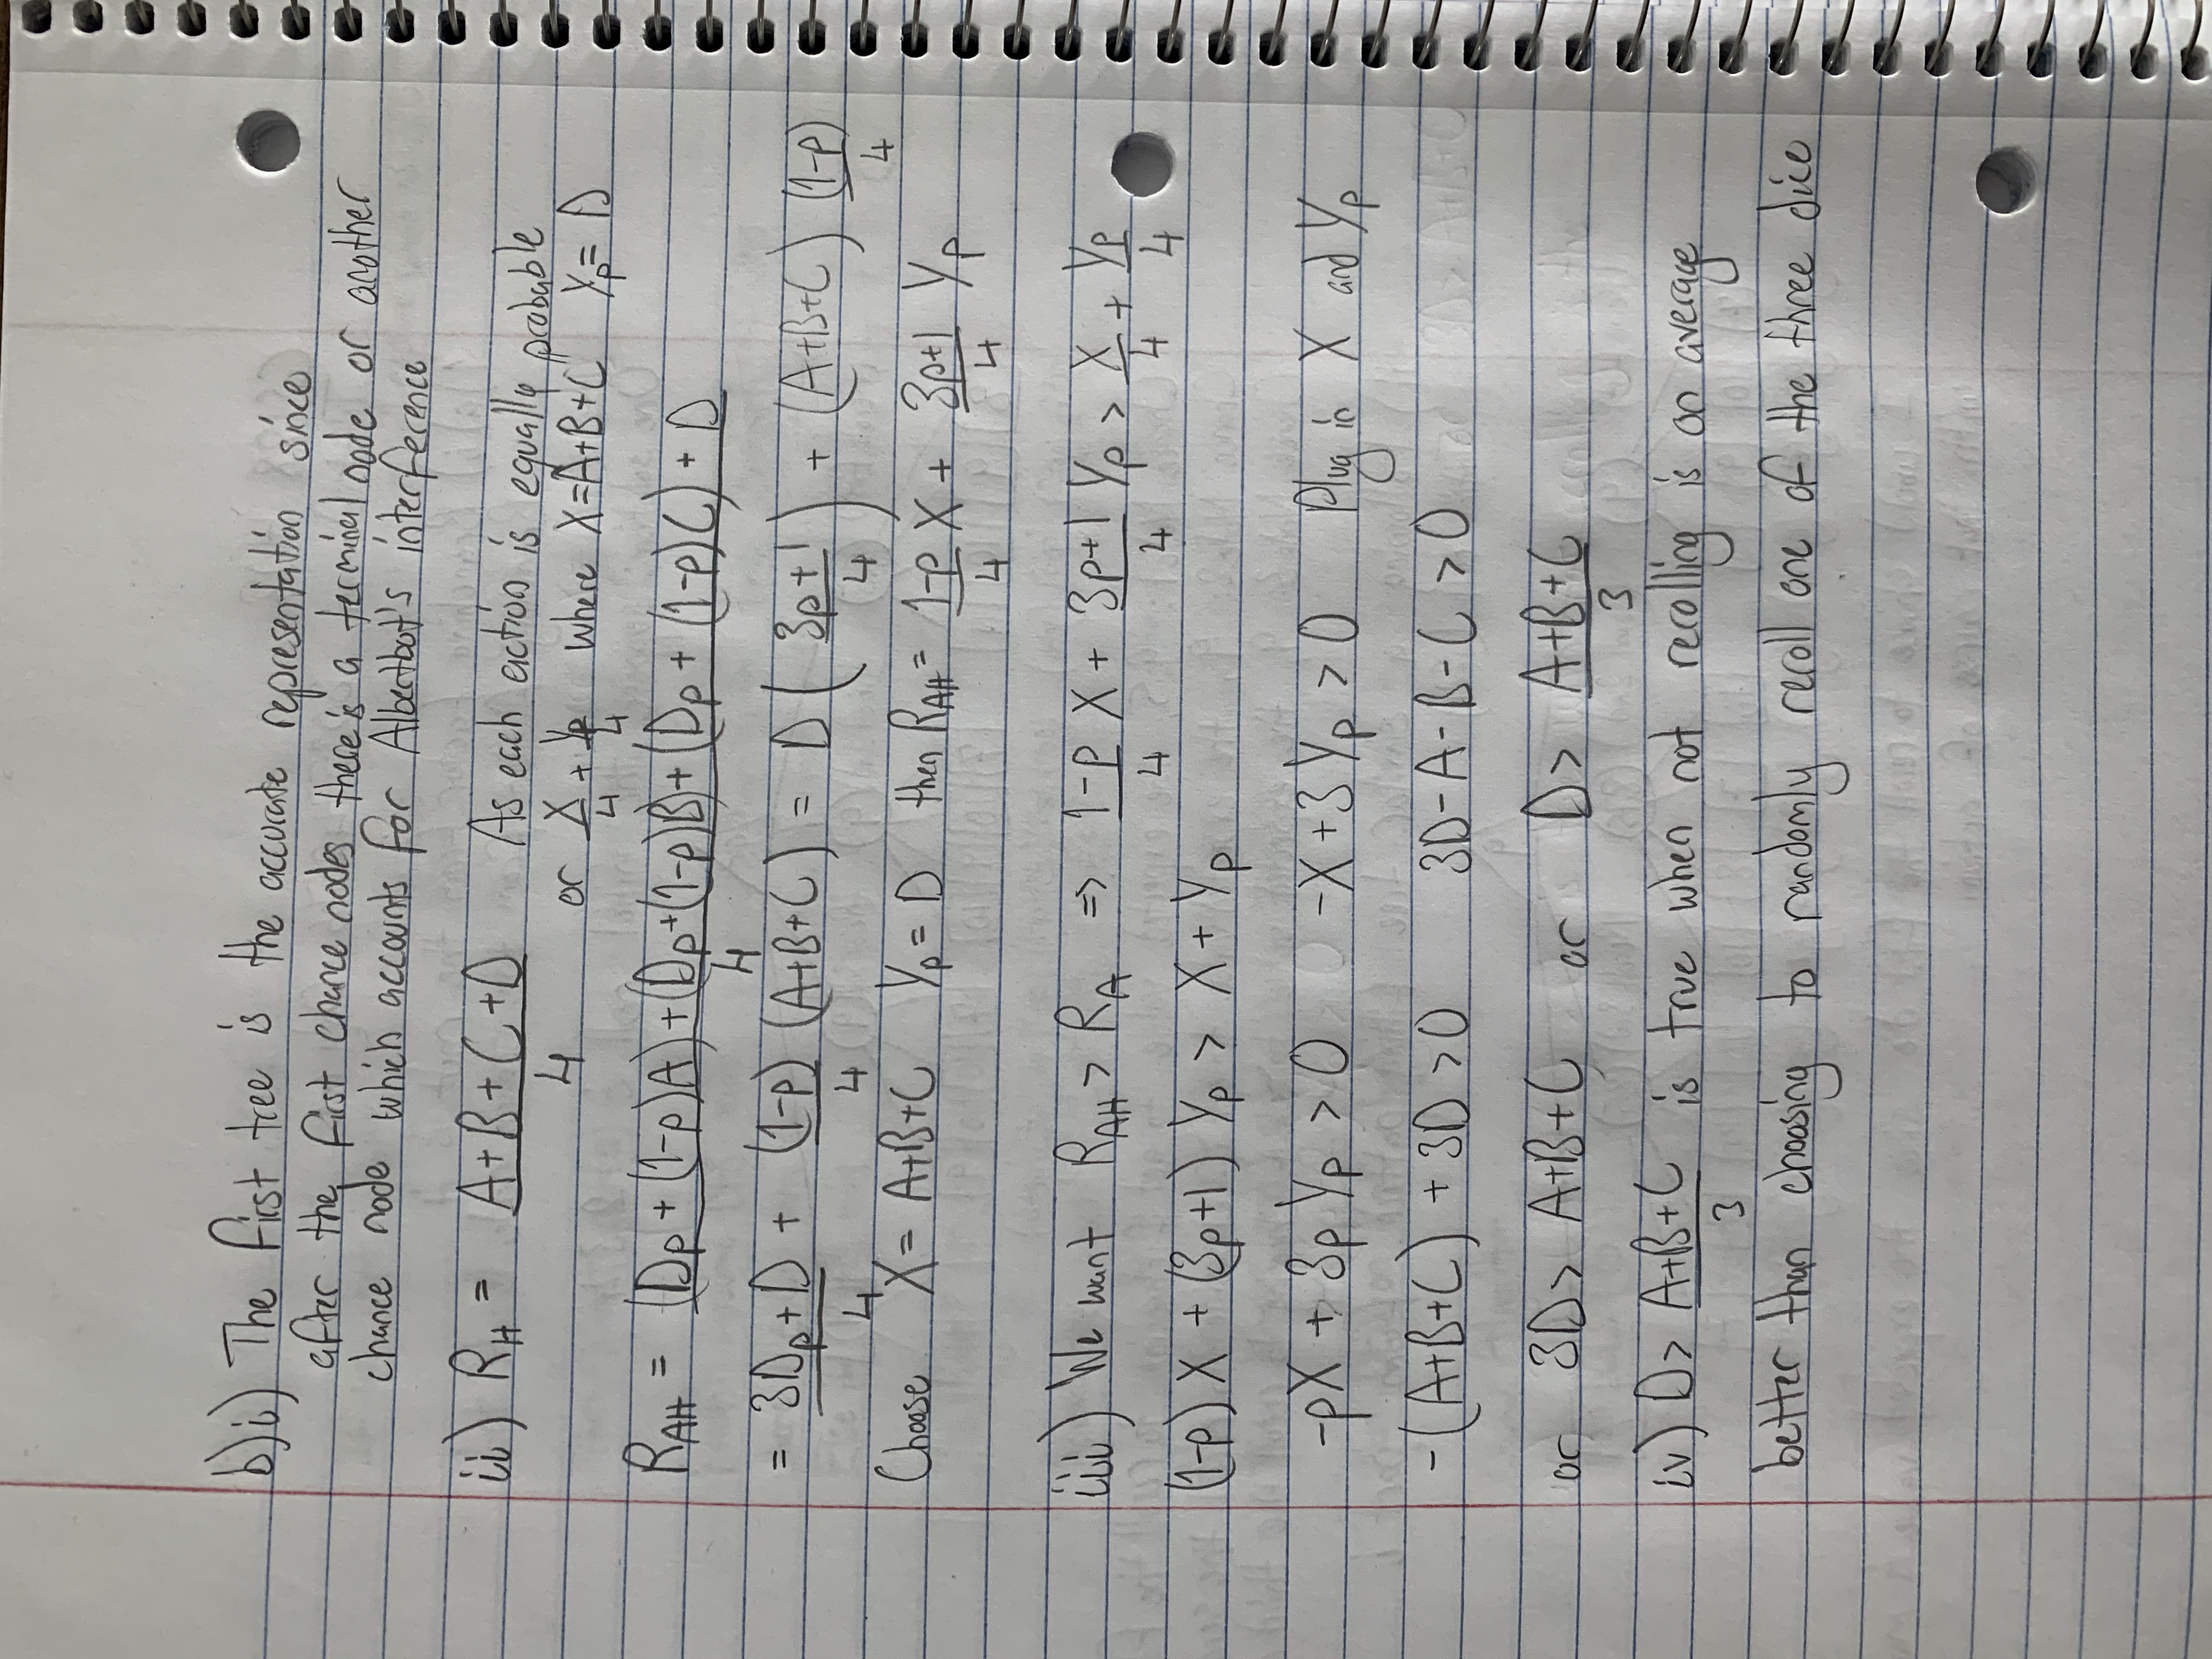 b)i) The first tree is the accurate representation since
after the first chance nodes there's a terminal node or another
chance node which accounts for Albertbot's interference
ii) R_H = (A+B+C+D)/4 As each action is equally probable
or X/4 + Y_p/4 where X=A+B+C Y_p= D
R_AH = ((Dp + (1-p)A)+(Dp+(1-p)B)+(Dp + (1-p)C) + D)/4
= (3Dp+D)/4 + (1-p)/4 (A+B+C) = D((3p+1)/4) + (A+B+C) (1-p)/4
Choose X= A+B+C Y_p = D then R_AH= (1-p)/4 X + (3p+1)/4 Y_p
iii) We want R_AH > R_A => (1-p)/4 X + (3p+1)/4 Y_p > X/4 + Y_p/4
(1-p) X + (3p+1) Y_p > X + Y_p
-pX + 3p Y_p > 0 -X+3 Y_p > 0 Plug in X and Y_p
-(A+B+C) + 3D > 0 3D-A-B-C > 0
or 3D > A+B+C or D > (A+B+C)/3
iv) D > (A+B+C)/3 is true when not recolling is on average
better than choosing to randomly reroll one of the three dice